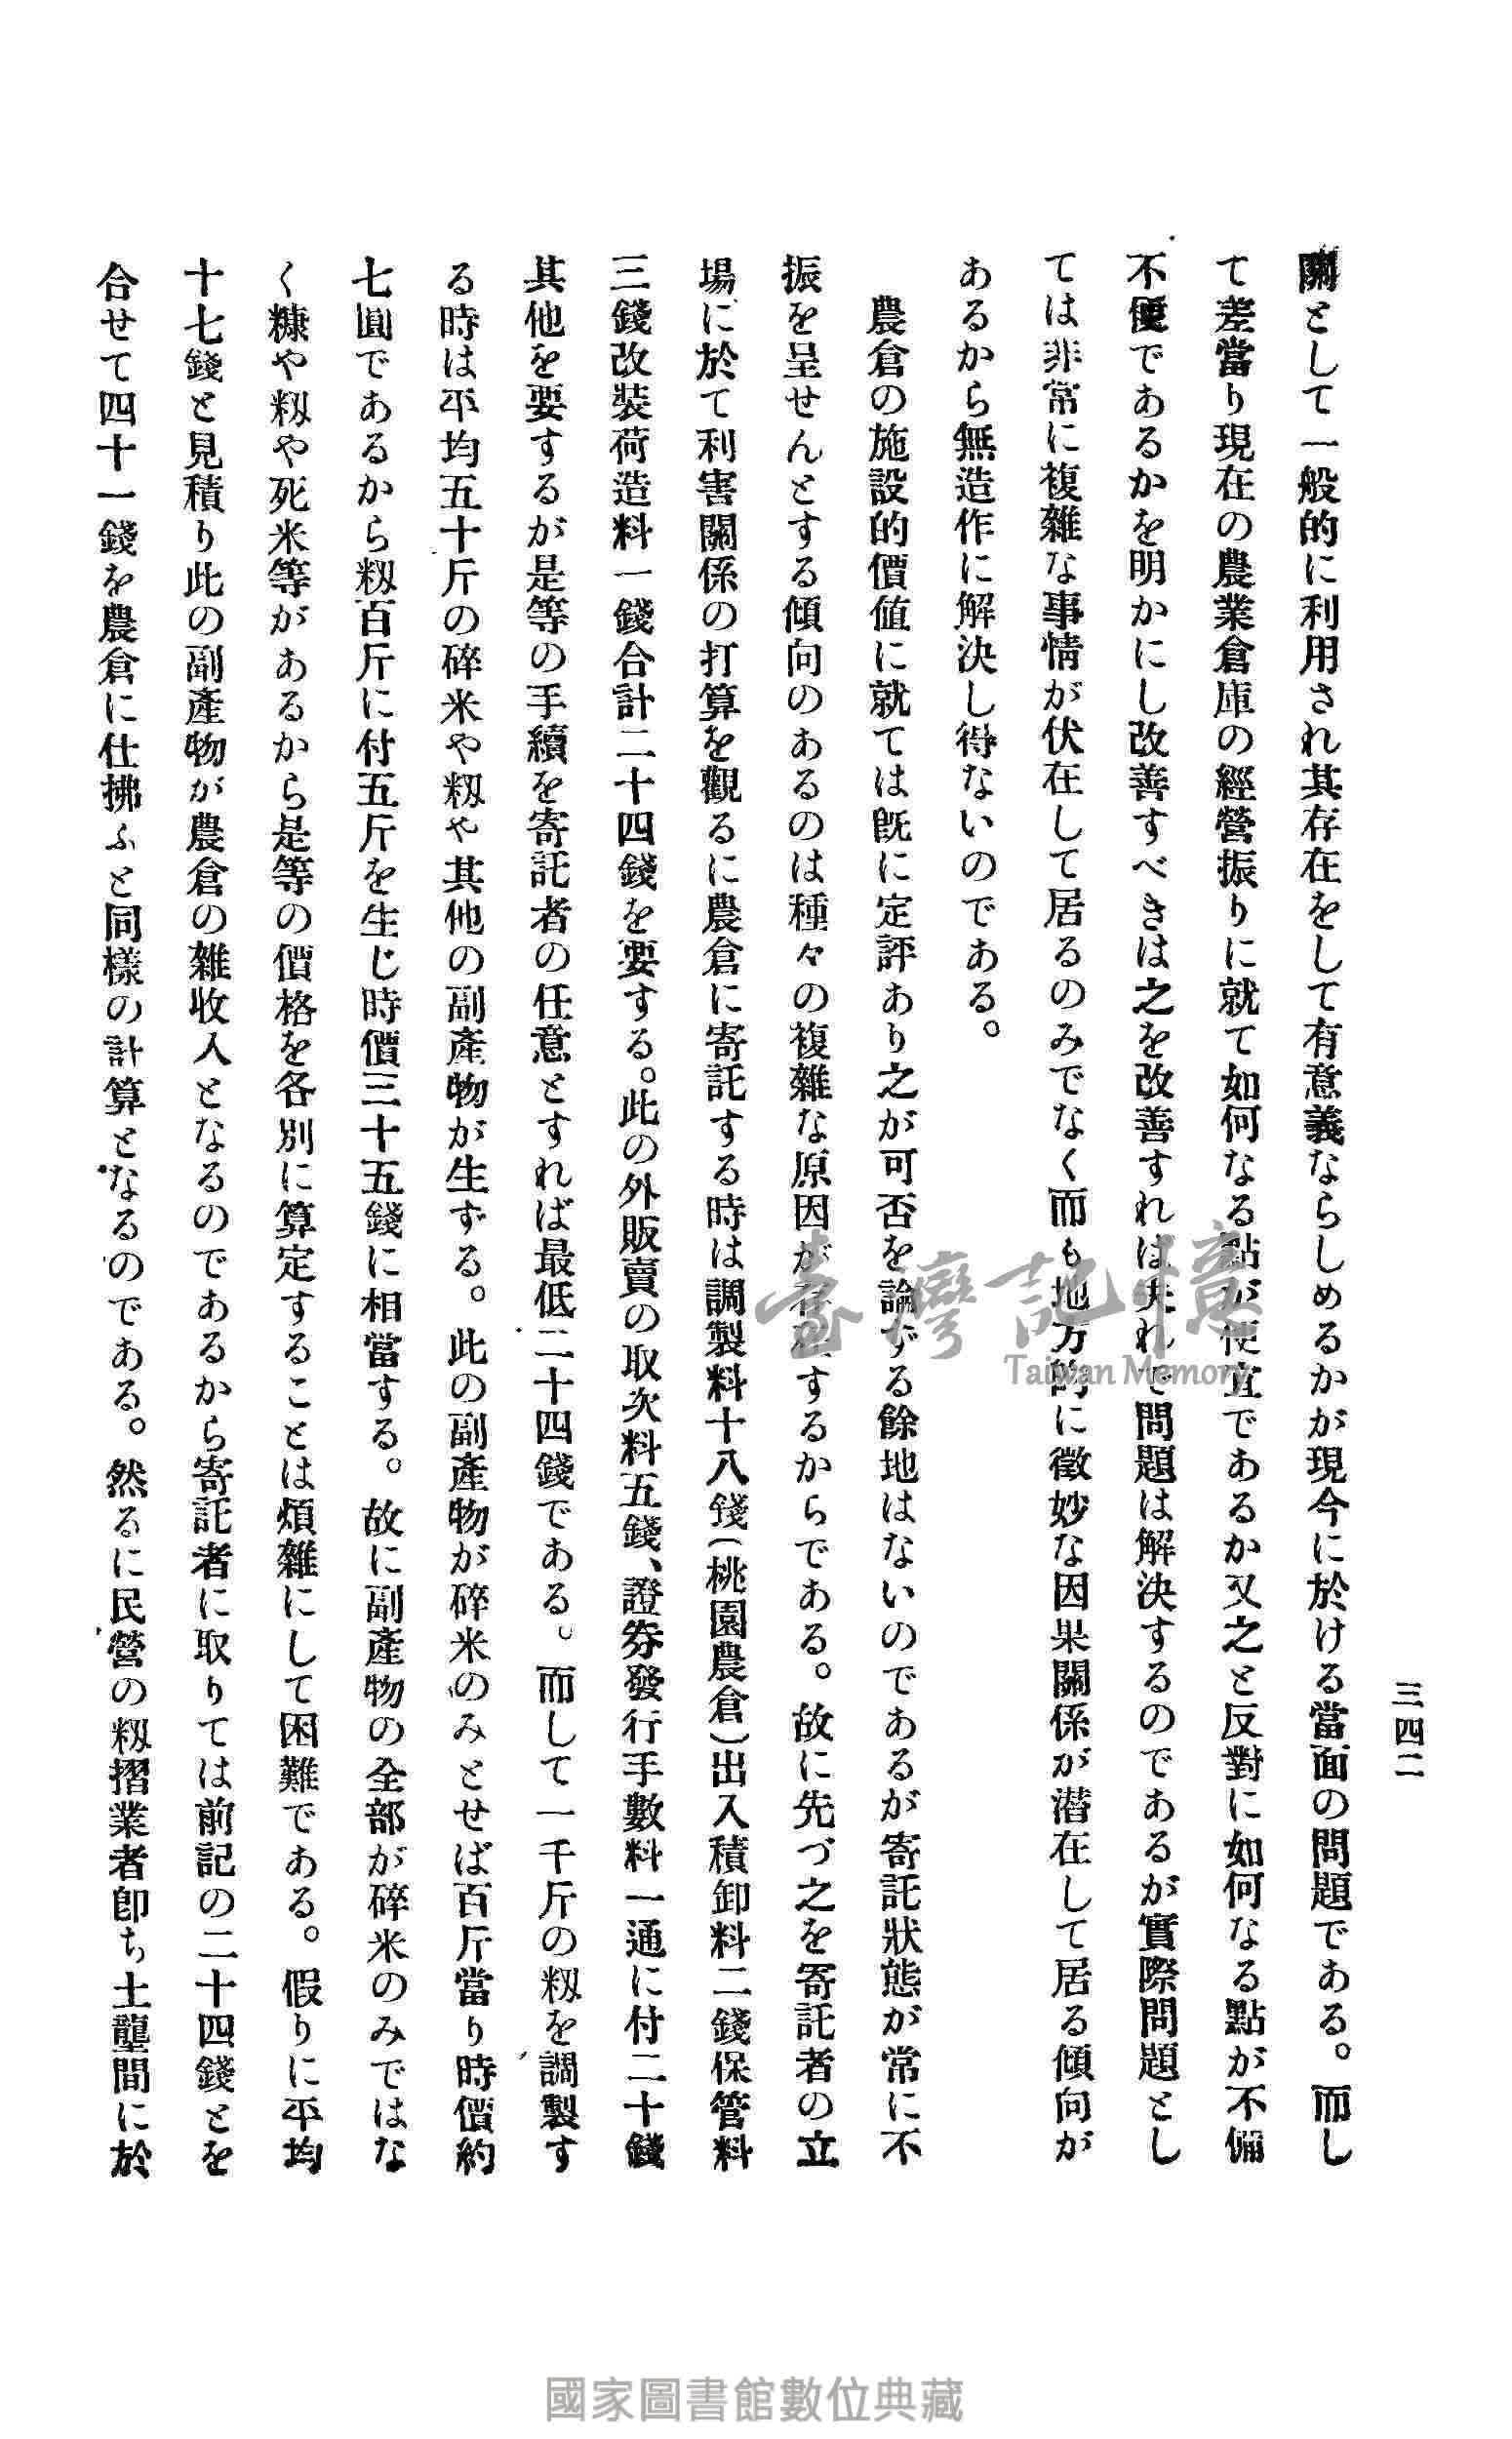 三四二
關として一般的に利用され其存在をして有意義ならしめるかが現今に於ける當面の問題である。而し
て差當り現在の農業倉庫の經營振りに就て如何なる點が便宜であるか又之と反對に如何なる點が不備
不便であるかを明かにし改善すべきは之を改善すれば夫れで問題は解決するのであるが實際問題とし
ては非常に複雜な事情が伏在して居るのみでなく而も地方的に微妙な因果關係が潜在して居る傾向が
あるから無造作に解決し得ないのである。
農倉の施設的價値に就ては旣に定評あり之が可否を論ずる餘地はないのであるが寄託狀態が常に不
振を呈せんとする傾向のあるのは種々の複雜な原因が存在するからである。故に先づ之を寄託者の立
場に於て利害關係の打算を觀るに農倉に寄託する時は調製料十八錢(桃園農倉)出入積卸料二錢保管料
三錢改裝荷造料一錢合計二十四錢を要する。此の外販賣の取次料五錢、證券發行手數料一通に付二十錢
其他を要するが是等の手續を寄託者の任意とすれば最低二十四錢である。而して一千斤の籾を調製す
る時は平均五十斤の碎米や籾や其他の副產物が生ずる。此の副產物が碎米のみとせば百斤當り時價約
七圓であるから籾百斤に付五斤を生じ時價三十五錢に相當する。故に副產物の全部が碎米のみではな
く糠や籾や死米等があるから是等の價格を各別に算定することは煩雜にして困難である。假りに平均
十七錢と見積り此の副產物が農倉の雜收入となるのであるから寄託者に取りては前記の二十四錢とを
合せて四十一錢を農倉に仕拂ふと同樣の計算となるのである。然るに民營の籾摺業者卽ち土壟間に於
臺灣記憶
Taiwan Memory
國家圖書館數位典藏